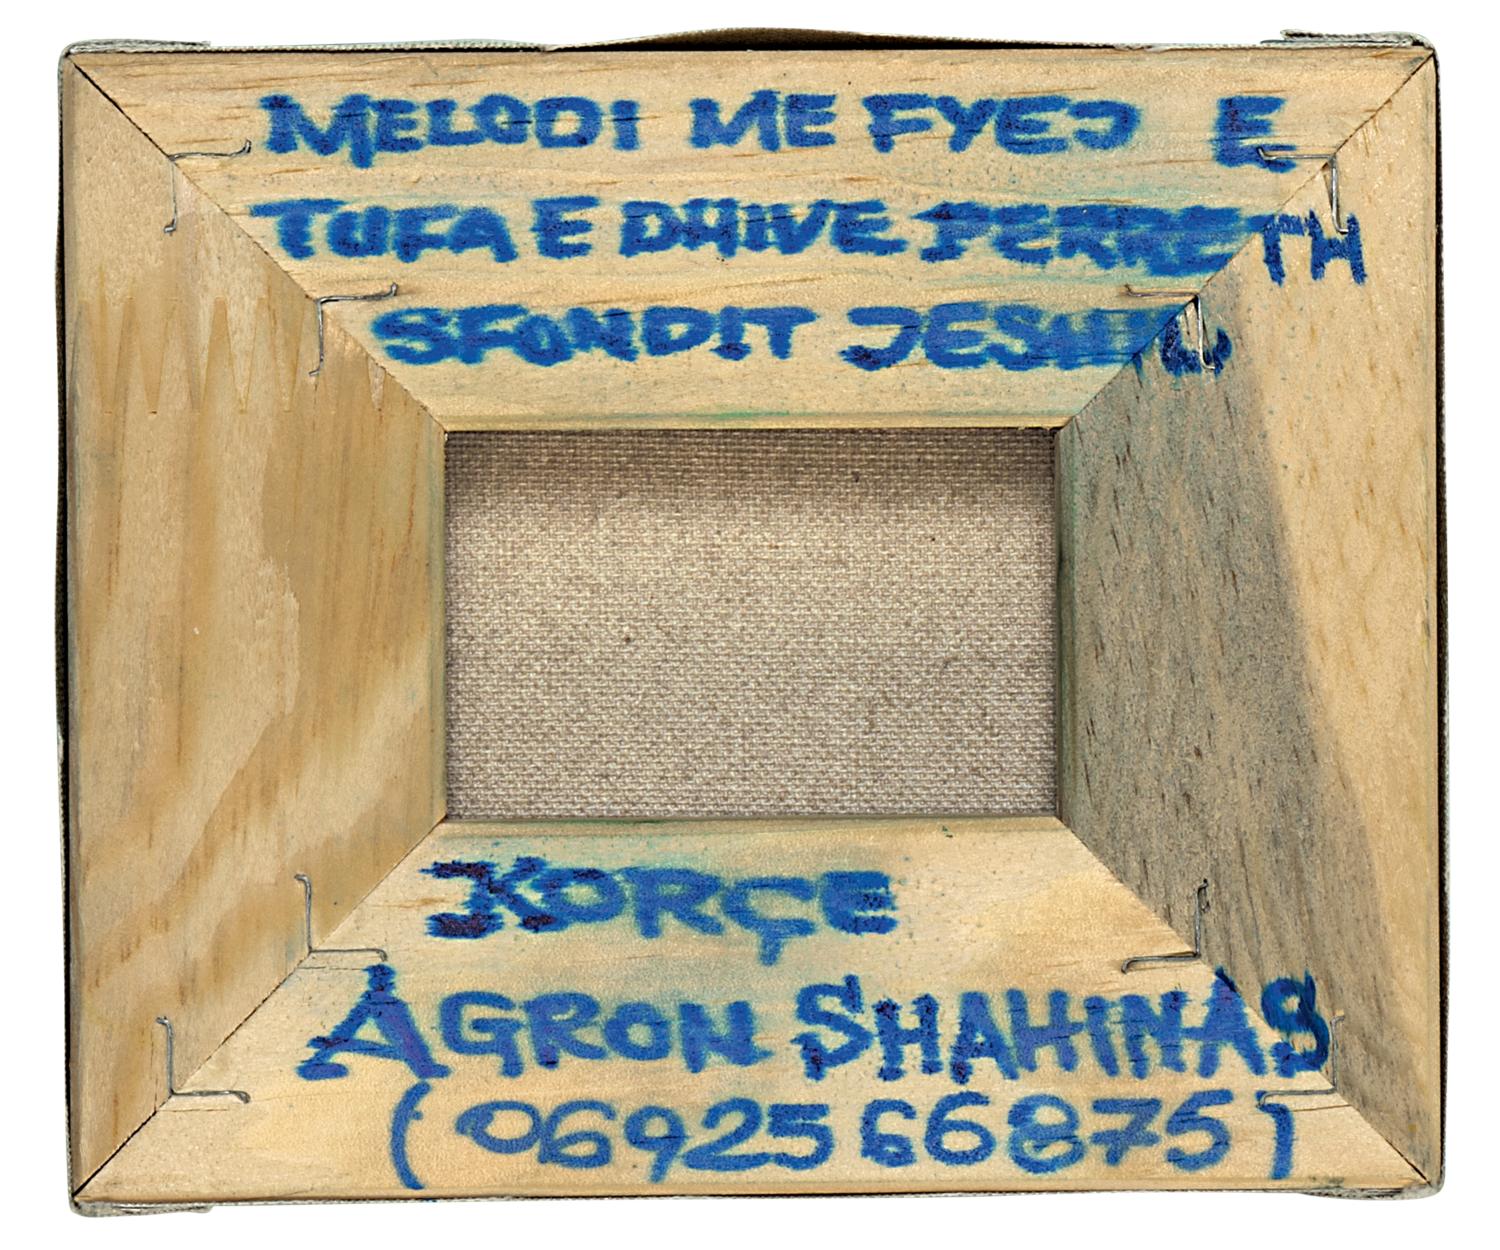 MELODI ME FYEJ E
TUFA E DHIVE PERRETH
SFONDIT JESHIL
KORÇE
AGRON SHAHINAS
(0692566875)